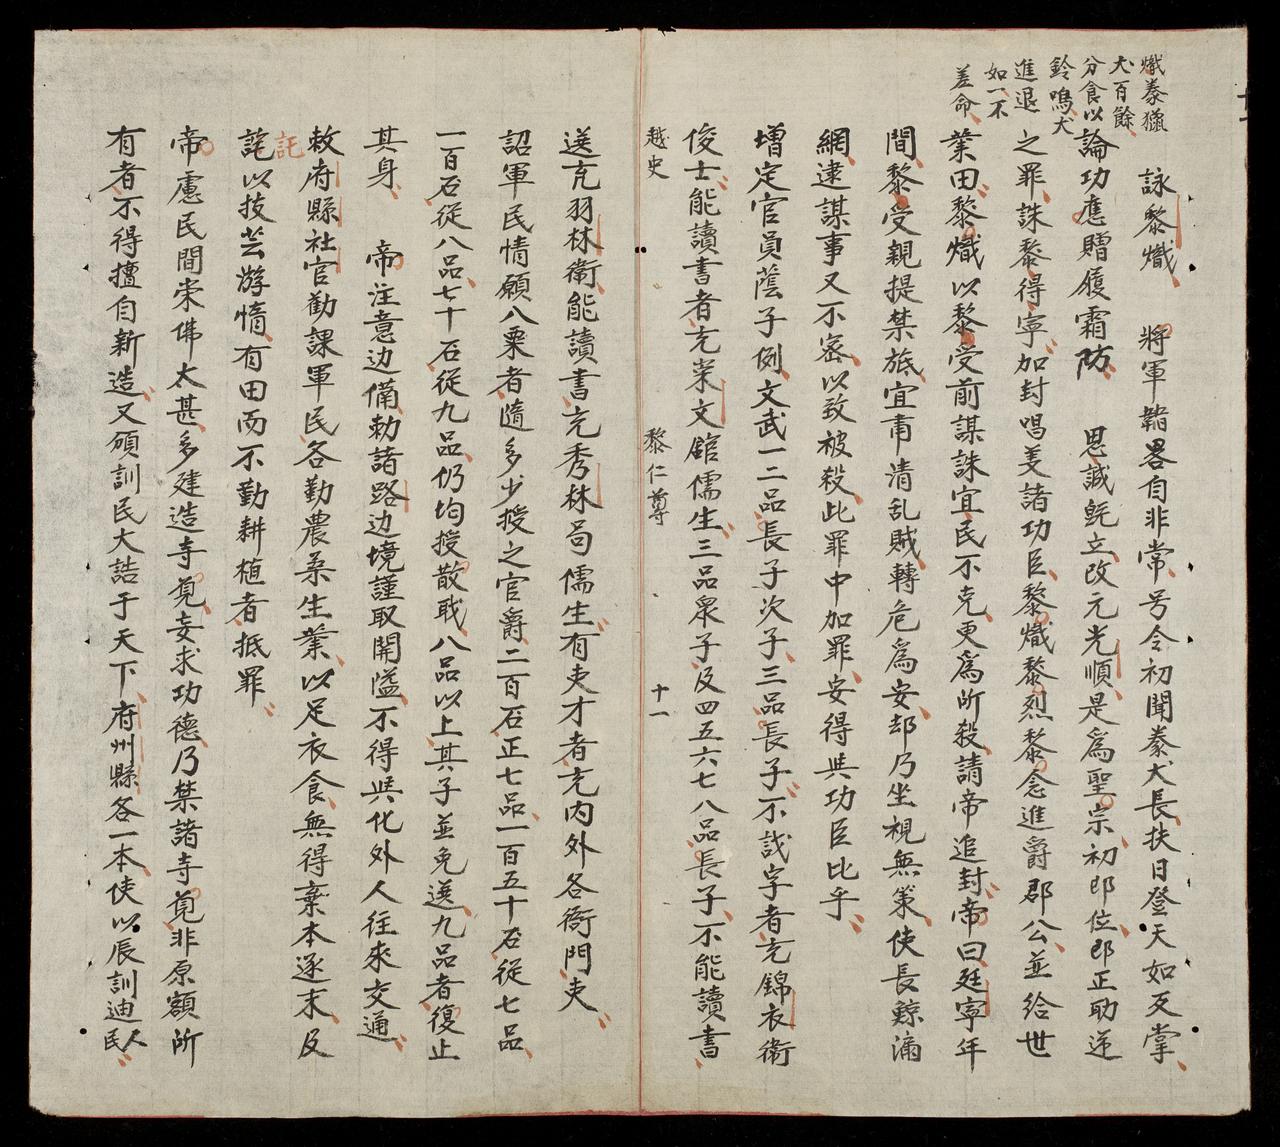 熾豢獵
犬百餘
分食以
鈴鳴犬
進退
如一不
差命
詠黎熾　將軍韜畧自非常号令初聞豢犬長扶日登天如反掌
論功應贈履霜防　思誠旣立改元光順是爲聖宗初即位即正助逆
之罪誅黎得寧加封唱美諸功臣黎熾黎烈黎念進爵郡公並給世
業田黎熾以黎受前謀誅宜民不克更爲所殺請帝追封帝曰延寧年
間黎受親提禁旅宜肅清乱賊轉危爲安却乃坐視無策使長鯨漏
網逮謀事又不密以致被殺此罪中加罪安得與功臣比乎
增定官員蔭子例文武一二品長子次子三品長子不識字者充錦衣衛
俊士能讀書者充崇文館儒生三品衆子及四五六七八品長子不能讀書
越史　黎仁尊　十一
送充羽林衛能讀書充秀林局儒生有吏才者充内外各衙門吏
詔軍民情願入粟者隨多少授之官爵二百石正七品一百五十石從七品
一百石從八品七十石從九品仍均授散职八品以上其子並免送九品者復止
其身　帝注意边備勅諸路边境謹取關隘不得與化外人往來交通
敕府縣社官勸課軍民各勤農桑生業以足衣食無得棄本逐末及
託
詫以技芸游惰有田而不勤耕植者抵罪
帝慮民間崇佛太甚多建造寺覓妄求功德乃禁諸寺覓非原額所
有者不得擅自新造又頒訓民大誥于天下府州縣各一本使以辰訓迪民人